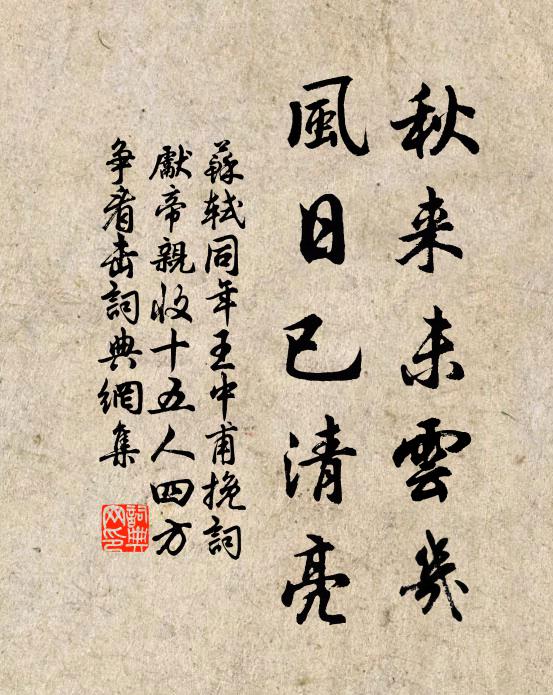 秋来未雲幾
風日已清亮
蘇軾同年王中甫挽詞
獻帝親收十五人四方
争看击詞典網集
詞典网印